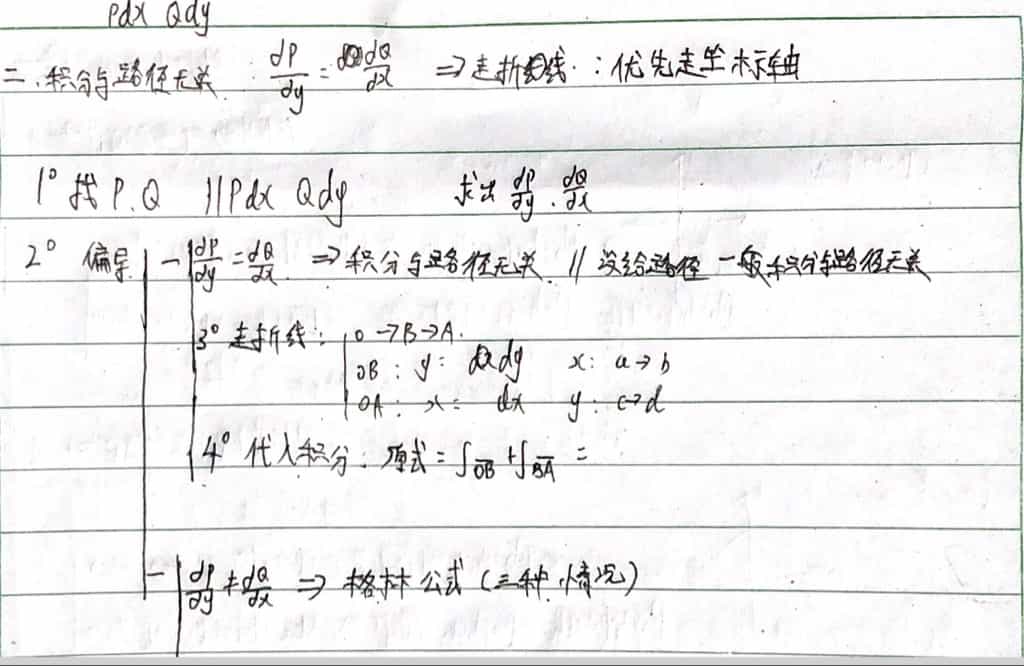 Pdx Qdy
二.积分与路径无关 dP/dy = dQ/dx ⇒走折线.：优先走坐标轴
1° 找P.Q //Pdx Qdy 求出 dP/dy . dQ/dx
2° 偏导 - dP/dy = dQ/dx ⇒积分与路径无关 // 没给路径 一般积分与路径无关
3° 走折线： O→B→A.
OB： y： dy x： a→b
OA： x= dx y： c→d
4° 代入积分： 原式=∫OB+∫BA =
- dP/dy ≠ dQ/dx ⇒ 格林公式(三种情况)